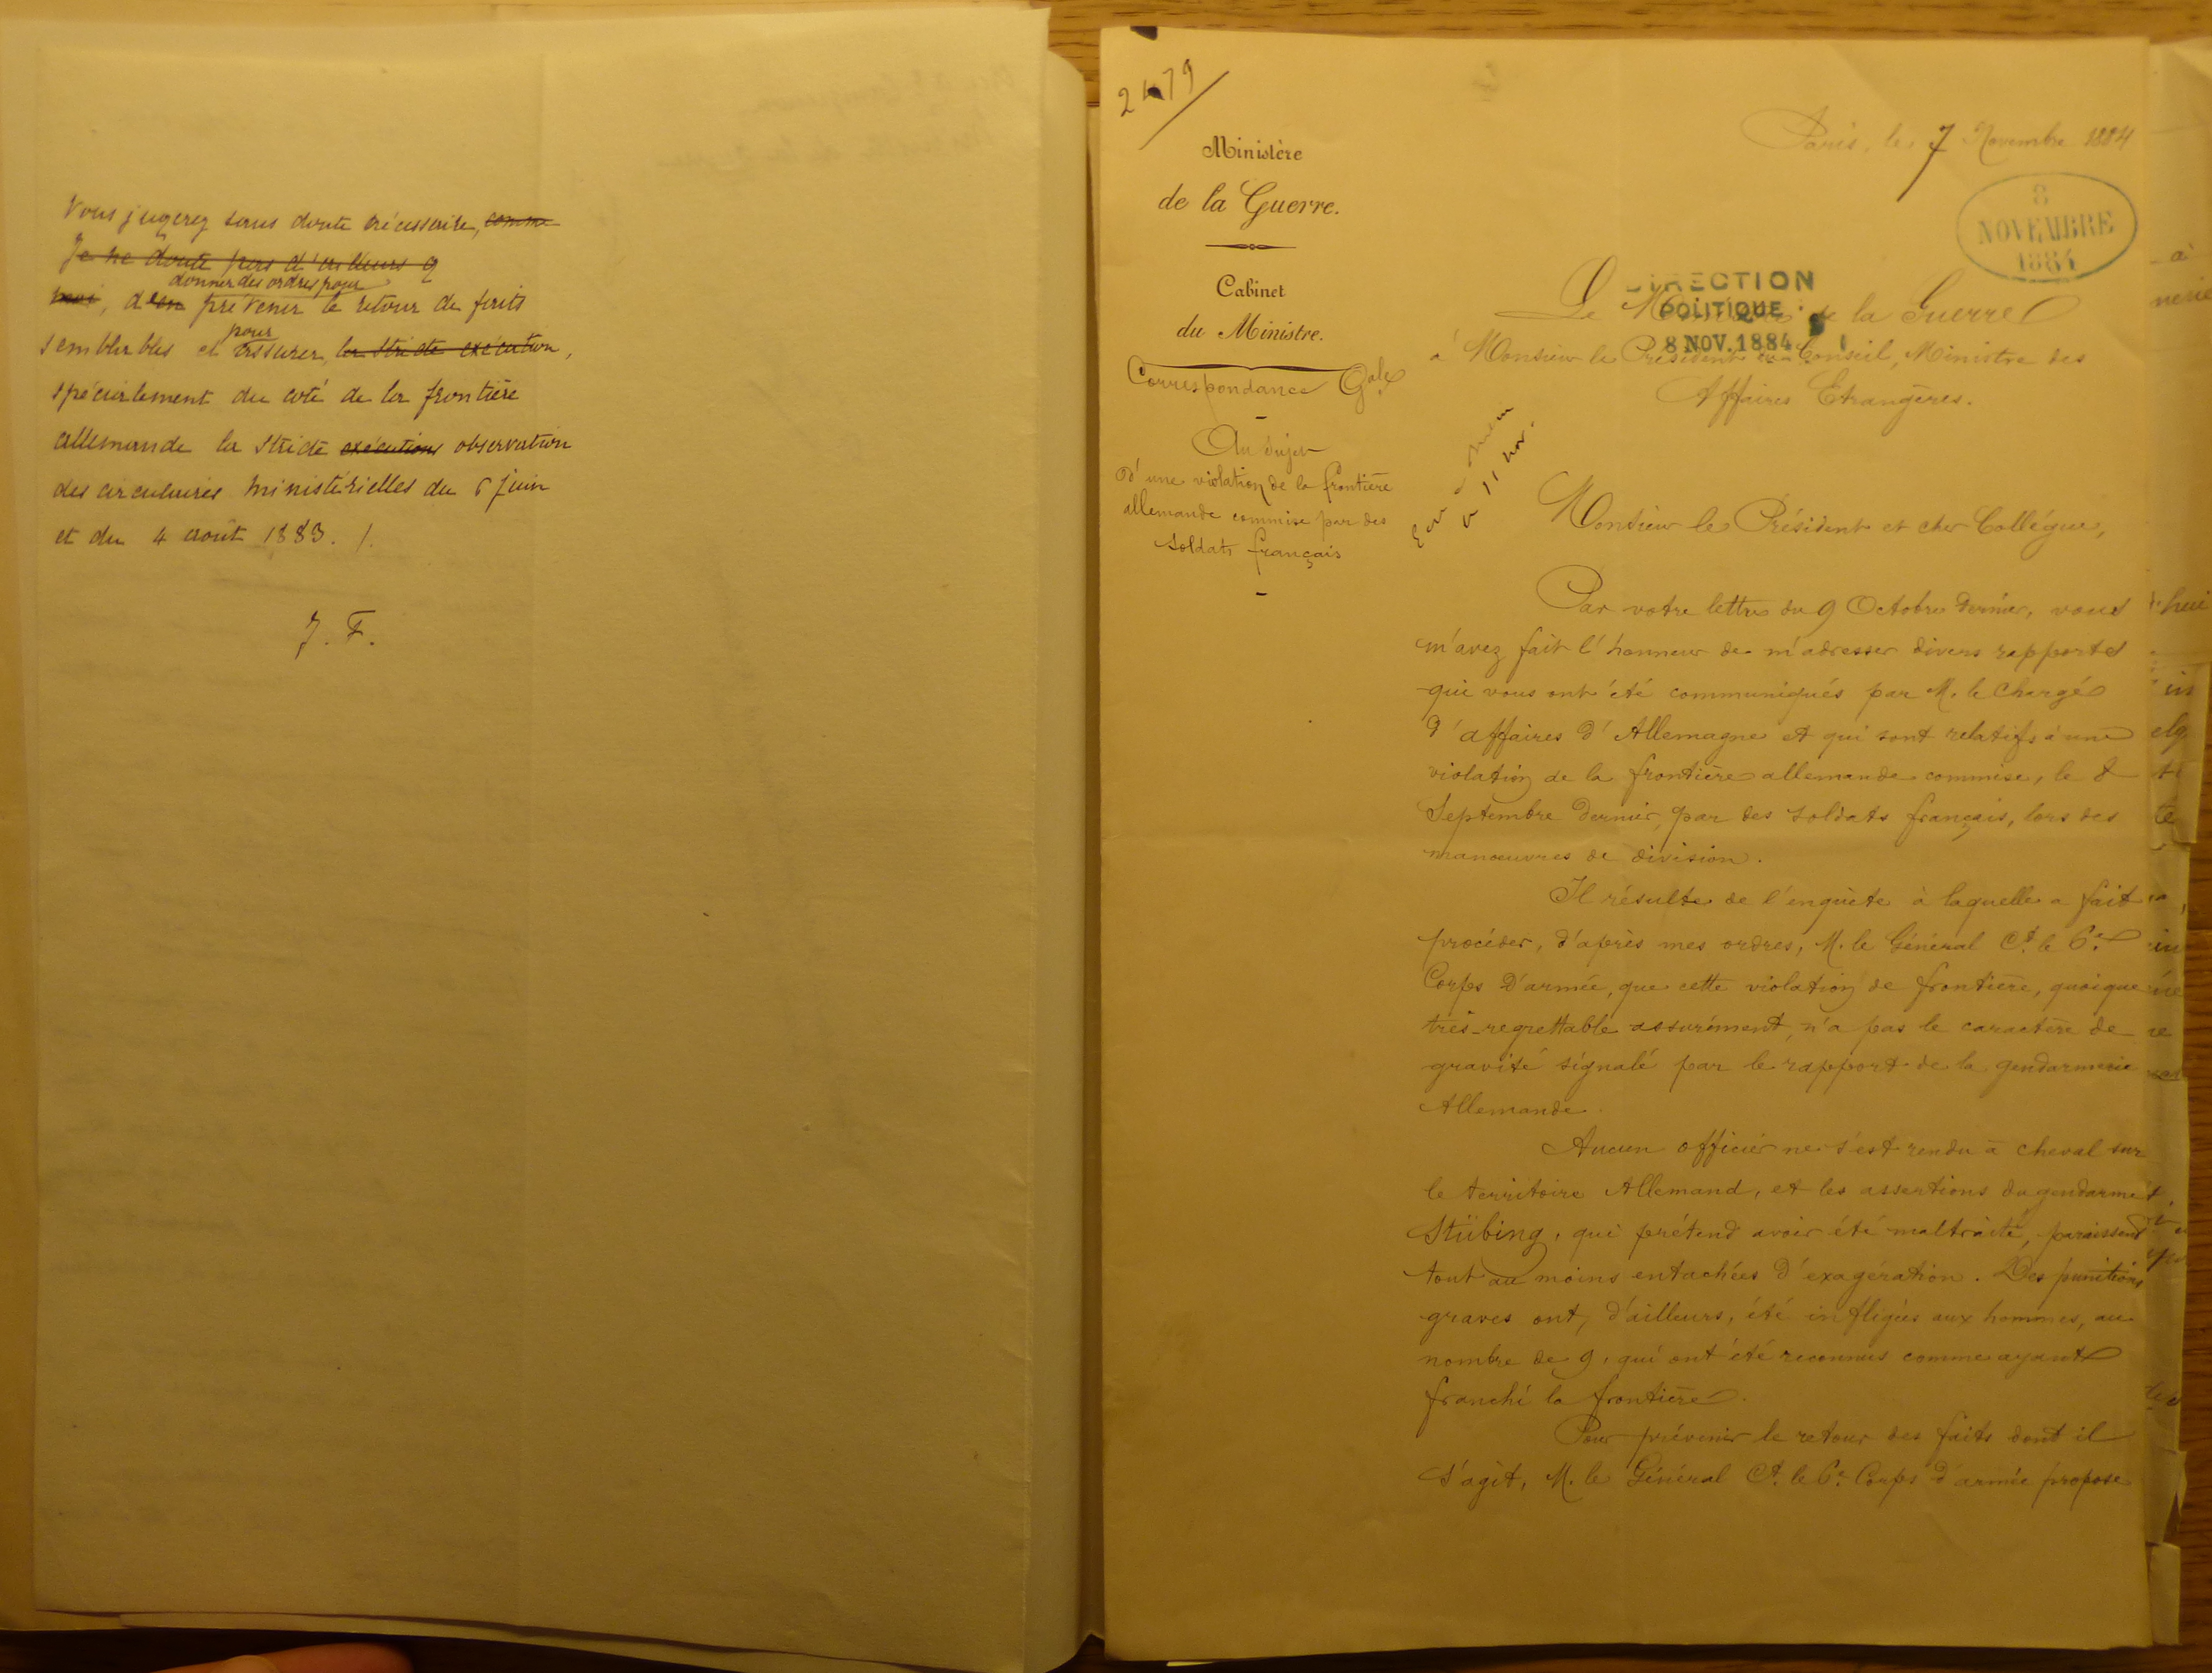 Vous jugerez sans doute nécessaire, comme
Je ne doute pas d'ailleurs q
donner des ordres pour
moi, d'en prévenir le retour de faits
pour
semblables et assurer, la stricte exécution,
spécialement du coté de la frontière
allemande la stricte exécution observation
des circulaires ministérielles du 6 juin
et du 4 août 1883. /.
J. F.
Ministère
de la Guerre.
Cabinet
du Ministre.
Correspondance Gale
Au sujet
d'une violation de la frontière
allemande commise par des
soldats français
Paris, le 7 Novembre 1884
8
NOVEMBRE
1884
DIRECTION
POLITIQUE
8 NOV. 1884
Le Ministre de la Guerre
à Monsieur le Président du Conseil, Ministre des
Affaires Etrangères.
11 nov.
Monsieur le Président et cher Collègue,
Par votre lettre du 9 Octobre dernier, vous
m'avez fait l'honneur de m'adresser divers rapports
qui vous ont été communiqués par M. le Chargé
d'affaires d'Allemagne et qui sont relatifs à une
violation de la frontière allemande commise, le 8
Septembre dernier, par des soldats français, lors des
manœuvres de division.
Il résulte de l'enquête à laquelle a fait
procéder, d'après mes ordres, M. le Général Ct. le 6e.
Corps d'armée, que cette violation de frontière, quoique
très-regrettable assurément, n'a pas le caractère de
gravité signalé par le rapport de la gendarmerie
Allemande.
Aucun officier ne s'est rendu à cheval sur
le territoire Allemand, et les assertions du gendarme
Stübing, qui prétend avoir été maltraité, paraissent
tout au moins entachées d'exagération. Des punitions
graves ont, d'ailleurs, été infligées aux hommes, au
nombre de 9, qui ont été reconnus comme ayant
franchi la frontière.
Pour prévenir le retour des faits dont il
s'agit, M. le Général Ct. le 6e. Corps d'armée propose